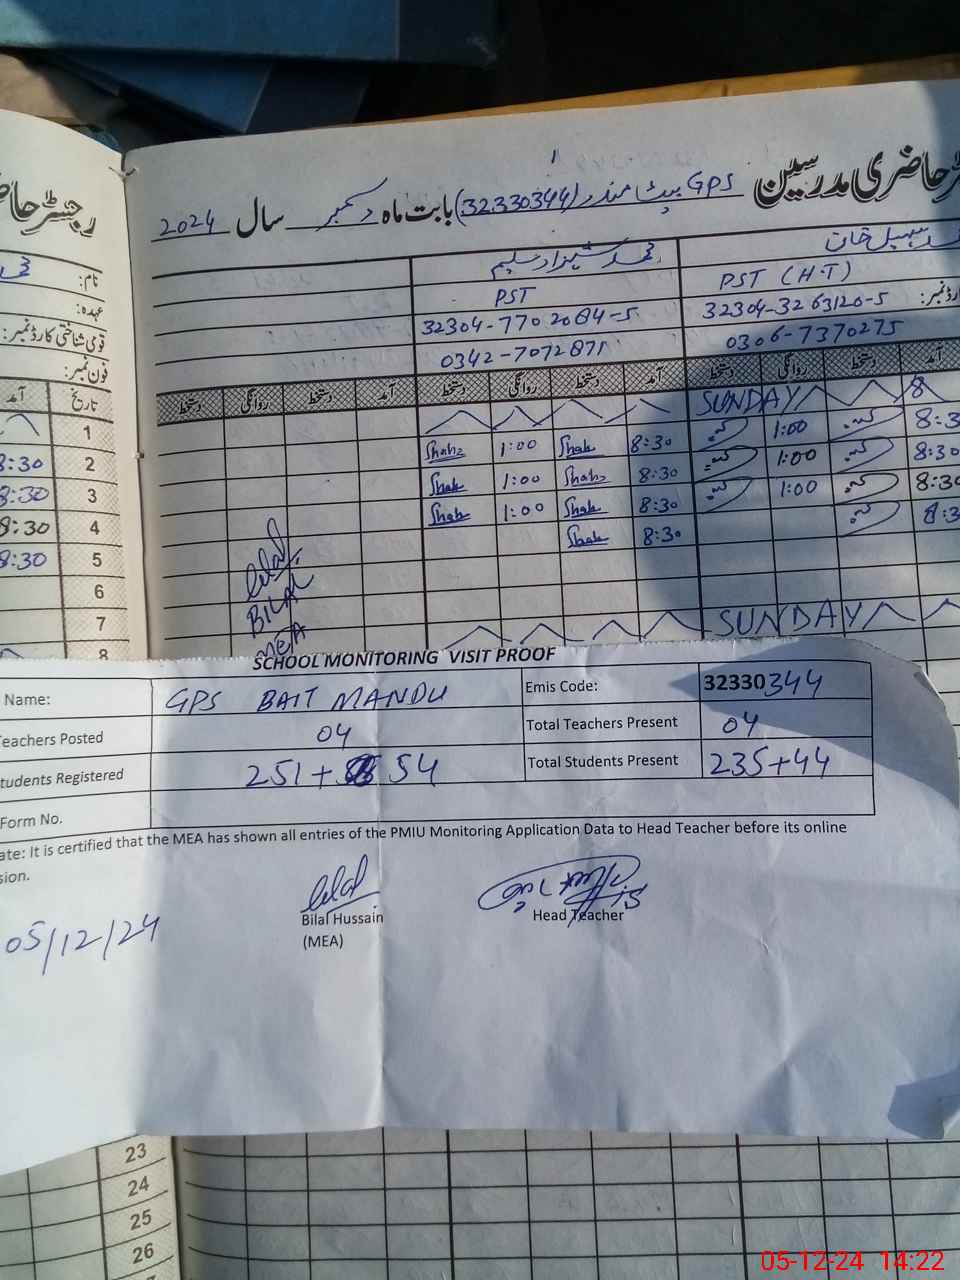 رجسٹر حا
رجسٹر حاضری مدرسین GPS بیٹ مندر (32330344) بابت ماہ دسمبر سال 2024
نام:
عہدہ:
قومی شناختی کارڈ نمبر:
فون نمبر:
محمد شہزاد سلیم
محمد سہیل خان
PST
PST (H.T)
32304-7702084-5
32304-3263120-5
0342-7072871
0306-7370275
تاریخ
آمد
دستخط روانگی دستخط آمد دستخط روانگی دستخط آمد دستخط روانگی دستخط آمد
1 SUNDAY
8:30 2 Shah 1:00 Shah 8:30 1:00 8:3
8:30 3 Shah 1:00 Shah 8:30 1:00 8:30
8:30 4 Shah 1:00 Shah 8:30 1:00 8:30
8:30 5 Shah 8:30 8:3
6
7
8 SUNDAY
Bilal
BILAL
MEA
SCHOOL MONITORING VISIT PROOF
Name: GPS BAIT MANDU Emis Code: 32330344
Teachers Posted 04 Total Teachers Present 04
tudents Registered 251+54 Total Students Present 235+44
Form No.
ate: It is certified that the MEA has shown all entries of the PMIU Monitoring Application Data to Head Teacher before its online
sion.
05/12/24
Bilal
Bilal Hussain
(MEA)
Head Teacher
23
24
25
26
05-12-24 14:22